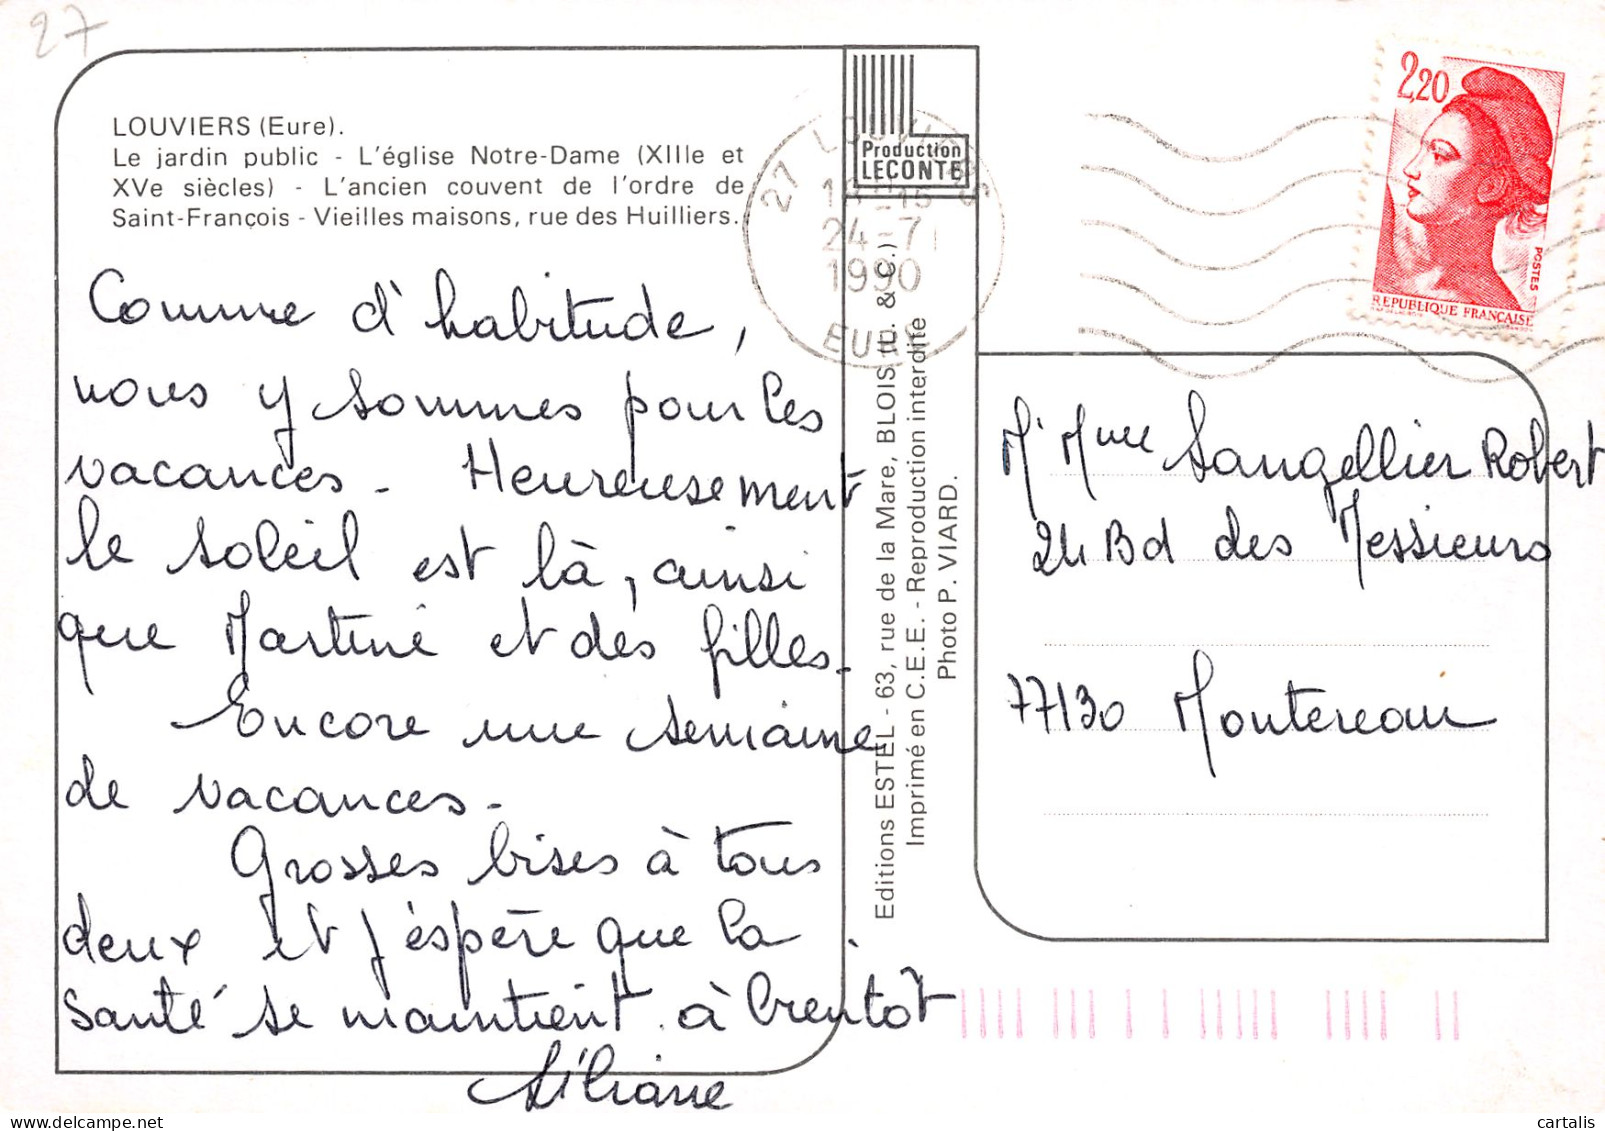 27
LOUVIERS (Eure).
Le jardin public - L'église Notre-Dame (XIIIe et
XVe siècles) - L'ancien couvent de l'ordre de
Saint-François - Vieilles maisons, rue des Huilliers.
Comme d'habitude,
nous y sommes pour les
vacances - Heureusement
le soleil est là, ainsi
que Martine et des filles.
Encore une semaine
de vacances.
Grosses bises à tous
deux et j'éspère que la
santé se maintient. à bientôt
Liliane
Production
LECONTE
27 LOUVIERS
24-7
1990
EURE
Editions ESTEL - 63, rue de la Mare, BLOIS (L. & C.)
Imprimé en C.E.E. - Reproduction interdite
Photo P. VIARD.
2,20
POSTES
REPUBLIQUE FRANÇAISE
M. Mme Sangellier Robert
24 Bd des Messieurs
77130 Montereau
cartalis